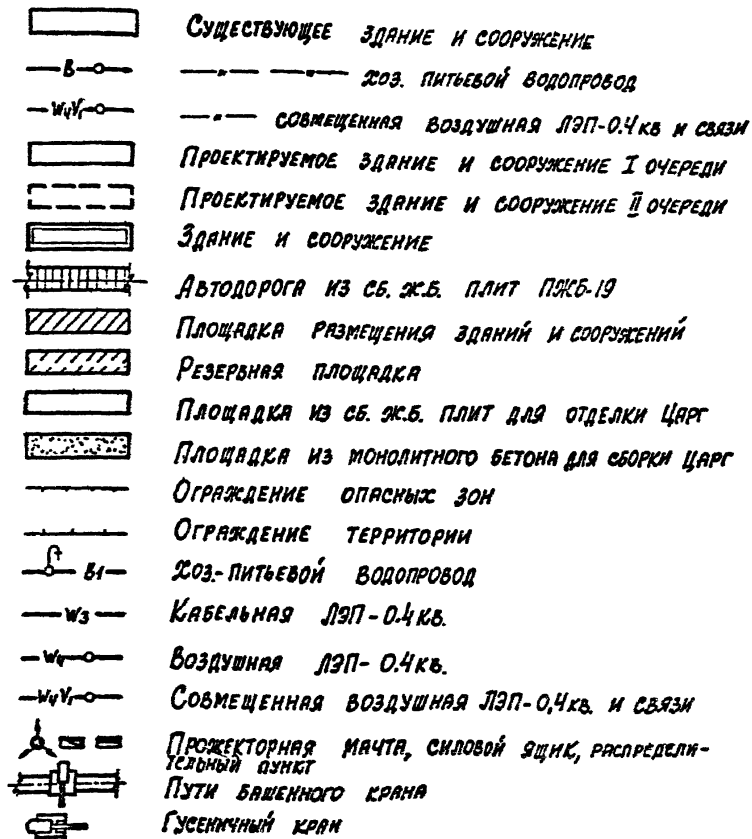 Существующее здание и сооружение
В —"— —"— хоз. питьевой водопровод
W4V1 —"— совмещенная воздушная ЛЭП-0.4кв и связи
Проектируемое здание и сооружение I очереди
Проектируемое здание и сооружение II очереди
Здание и сооружение
Автодорога из сб. ж.б. плит ПЖБ-19
Площадка размещения зданий и сооружений
Резервная площадка
Площадка из сб. ж.б. плит для отделки царг
Площадка из монолитного бетона для сборки царг
Ограждение опасных зон
Ограждение территории
В1 Хоз.-питьевой водопровод
W3 Кабельная ЛЭП-0.4кв.
W4 Воздушная ЛЭП-0.4кв.
W4V1 Совмещенная воздушная ЛЭП-0,4кв. и связи
Прожекторная мачта, силовой ящик, распредели-
тельный пункт
Пути башенного крана
Гусеничный кран